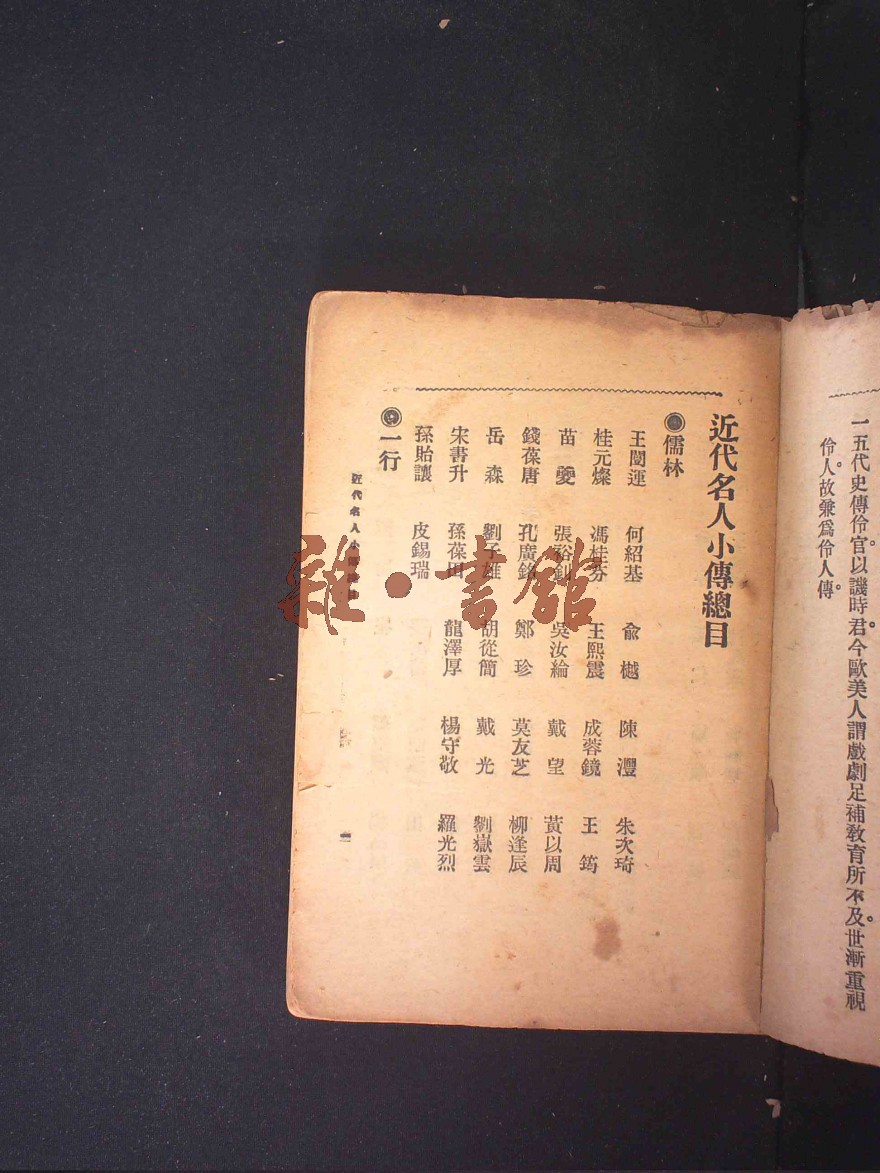 一五代史傳伶官以譏時君。今歐美人謂戲劇足補教育所不及。世漸重視
伶人。故兼爲伶人傳。
近代名人小傳總目
儒林
王闓運 何紹基 俞樾 陳灃 朱次琦
桂元燦 馮桂芬 王熙震 成蓉鏡 王筠
苗夔 張裕釗 吳汝綸 戴望 黃以周
錢葆唐 孔廣銘 鄭珍 莫友芝 柳逢辰
岳森 劉子雄 胡從簡 戴光 劉嶽雲
宋書升 孫葆田 龍澤厚 楊守敬 羅光烈
孫貽讓 皮錫瑞
一行
近代名人小
雜·書館